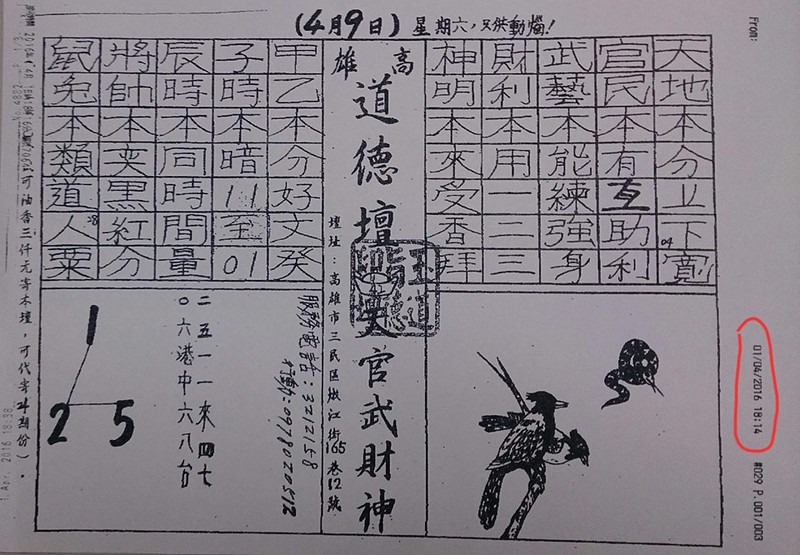 From:
01/04/2016 18:14
#029 P.001/003
(4月9日)星期六,
天地本分上下寬
04
官民本有互助利
武藝本能練強身
財利本用一二三
神明本來受香拜
高雄
道德壇 文官武財神
壇址:高雄市三民區 江街165巷12號
甲乙本分好文癸
子時本暗11至01
辰時本同時間量
將帥本奕黑紅分
28
鼠兔本類道人粟
服務電話:3212158
行動:0978020512
二五一一來四七
〇六港中六八台
1
2 5
可油香三仟元寄本壇,可代寄24期份).
1. Apr. 2016 18:38